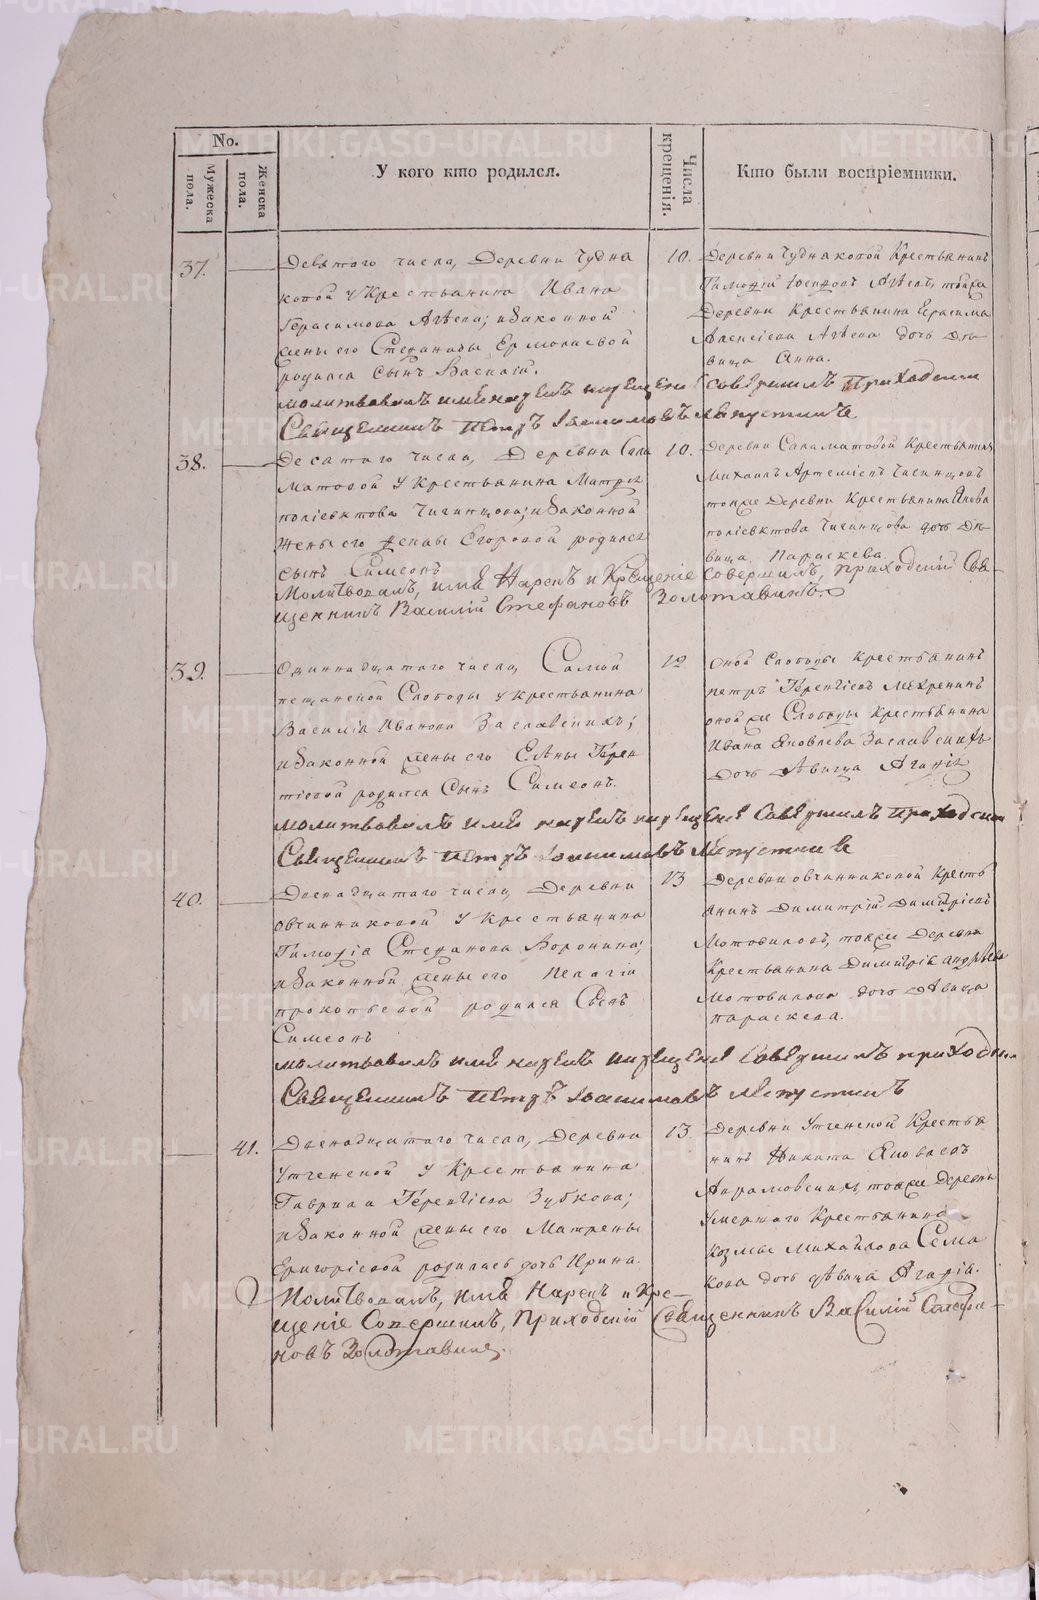 No.
Мужеска пола.
Женска пола.
У кого кто родился.
Числа крещенія.
Кто были воспріемники.
37.
Девятого числа, Деревни Чудна
ковой у Крестьянина Ивана
Герасимова Агѣева; и законной
жены его Стефаниды Ермолаевой
родился сынъ Василій.
10.
Деревни Чуднаковой Крестьянинъ
Тимофей Агѣевъ, тойже
Деревни Крестьянина Герасима
Алексіева Агѣева дочь дѣ-
вица Анна.
молитвовалъ имя нарекъ и крещеніе совершилъ Приходскій
Священникъ Петръ Іоакимовъ Ляпустинъ
38.
Десятого числа, Деревни Сала
матовой у Крестьянина
Поліевктова Чичинцова; и законной
жены его Егоровой родился
сынъ Симеонъ
10.
Деревни Саламатовой Крестьянинъ
Михаилъ Артеміевъ Чичинцовъ
тоже Деревни Крестьянина Якова
Поліевктова Чичинцова дочь дѣ-
вица Параскева.
Молитвовалъ, имя Нарекъ и Крещеніе Совершилъ, Приходскій Свя-
щенникъ Василій Стефановъ Золотавинъ.
39.
Одиннадцатаго числа, Самой
Пещанской Слободы у крестьянина
Василія Иванова Заславскихъ;
и законной жены его Елены Терен
тіевой родился Сынъ Симеонъ.
12
Оной Слободы Крестьянинъ
Петръ Терентіевъ
оной же Слободы Крестьянина
Ивана Яковлева Заславскихъ
дочь дѣвица Агафія
молитвовалъ имя нарекъ и крещеніе Совершилъ приходскій
Священникъ Петръ Іоакимовъ Ляпустинъ
40.
Двенадцатаго числа, Деревни
Овчинниковой у Крестьянина
Тимофея Стефанова Воронина;
и законной жены его Пелагіи
Прокопьевой родился Сынъ
Симеонъ
13
Деревни Овчинниковой Кресть
янинъ Димитрій Димитріевъ
Мотовиловъ, тоже Деревни
Крестьянина Димитрія Андреева
Мотовилова дочь дѣвица
Параскева.
молитвовалъ имя нарекъ и крещеніе Совершилъ приходскій
Священникъ Петръ Іоакимовъ Ляпустинъ
41.
Двенадцатаго числа, Деревни
Утченской у Крестьянина
Гаврила Терентіева Зубкова;
и законной жены его Матрены
Григорьевой родилась дочь Ирина.
13.
Деревни Утченской Крестья
нинъ Никита Яковлевъ
Аврамовскихъ, тоже Деревни
умершаго Крестьянина
Козмы Михайлова Сема
кова дочь дѣвица Агафія.
Молитвовалъ, имя Нарекъ и Кре-
щеніе Совершилъ, Приходскій Священникъ Василій Стефа-
новъ Золотавинъ.
METRIKI.GASO-URAL.RU